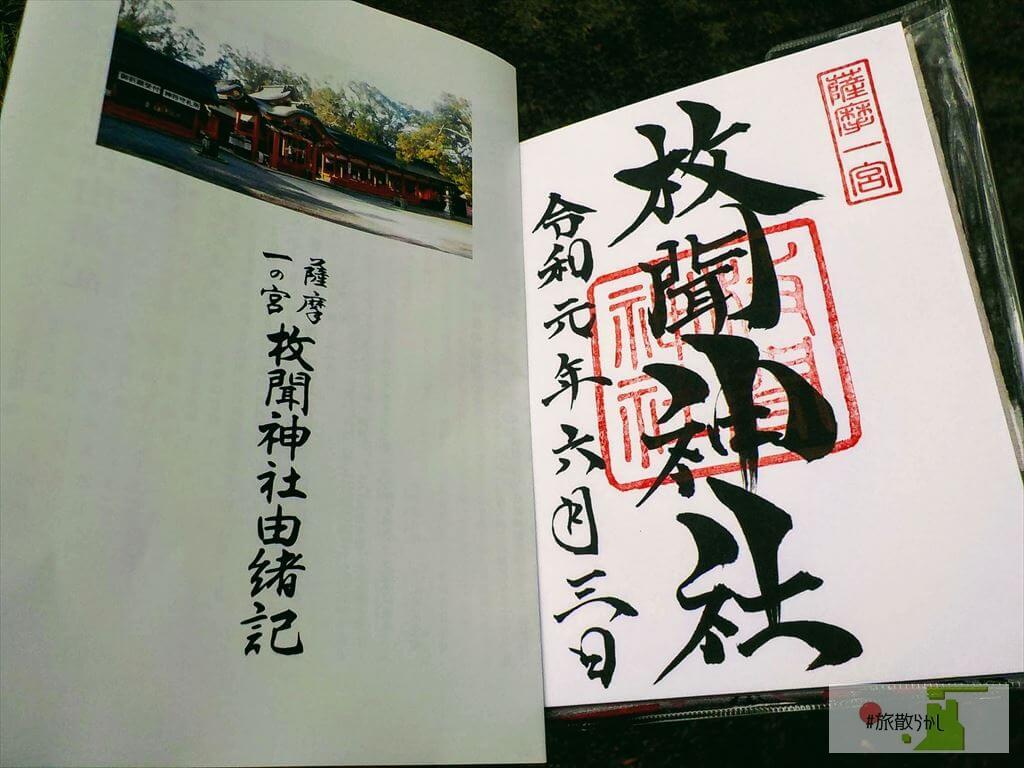 薩摩
一の宮
枚聞神社由緒記
薩摩一宮
枚聞神社
令和元年六月三日
枚聞
神社
#旅散らかし